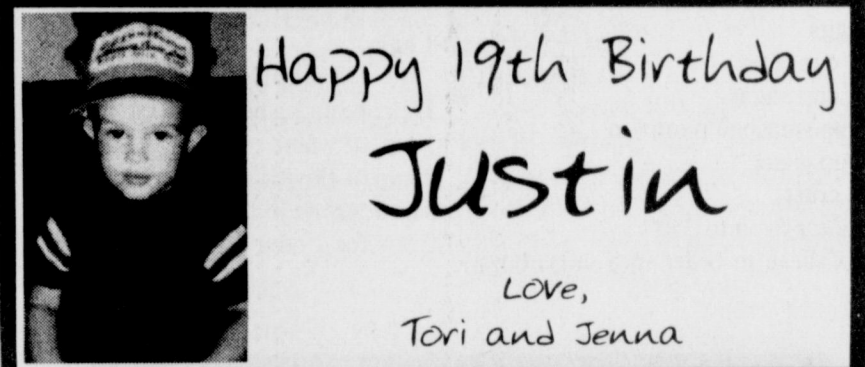 Happy 19th Birthday
Justin
Love,
Tori and Jenna